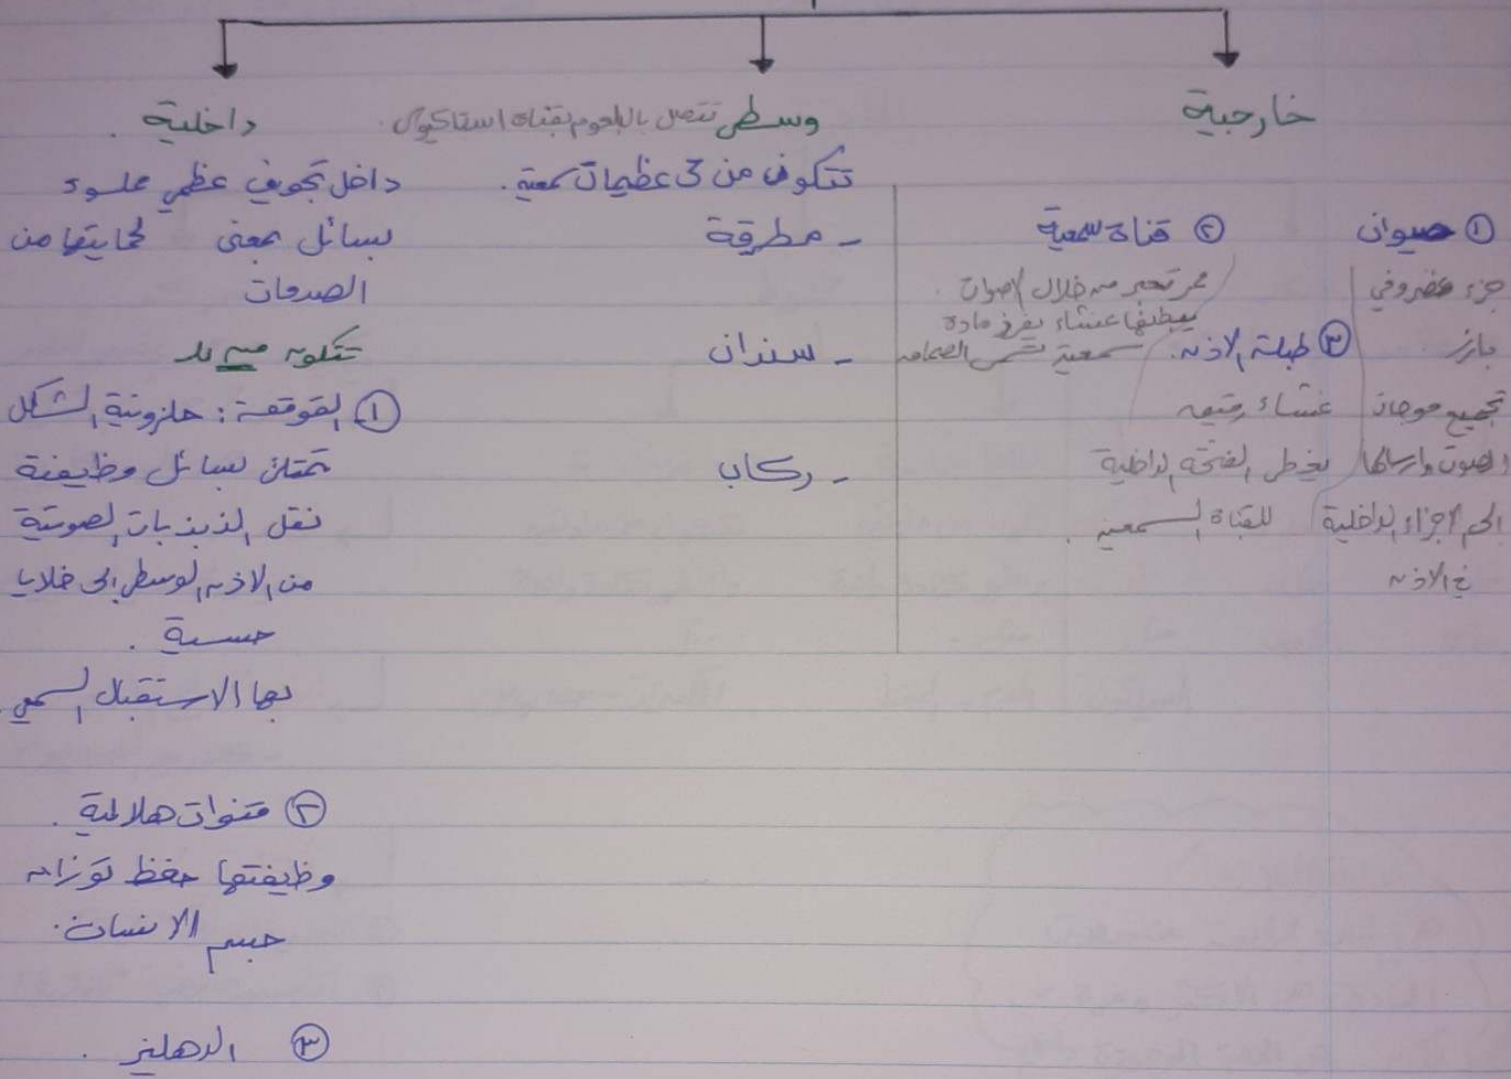 خارجية
① صيوان
جزء غضروفي
بارز
تجميع موجات
الصوت وارسالها
الى الاجزاء الداخلية
في الاذن
② قناة سمعية
ممر تعبر من خلال الاصوات
يبطنها غشاء يفرز مادة
سمعية تسمى الصماخ
③ طبلة الاذن.
غشاء رقيق
يغطي الفتحة الداخلية
للقناة السمعية.
وسطى تتصل بالبلعوم بقناة استاكيوس.
تتكون من 3 عظيمات سمعية.
- مطرقة
- سندان
- ركاب
داخلية.
داخل تجويف عظمي مملوء
بسائل بمعنى لحمايتها من
الصدمات
تتكون من
① القوقعة: حلزونية الشكل
تمتلئ بسائل وظيفية
نقل الذبذبات الصوتية
من الاذن الوسطى الى خلايا
حسية.
بها الاستقبال السمعي.
② قنوات هلالية.
وظيفتها حفظ توزان
جسم الانسان.
③ الدهليز.